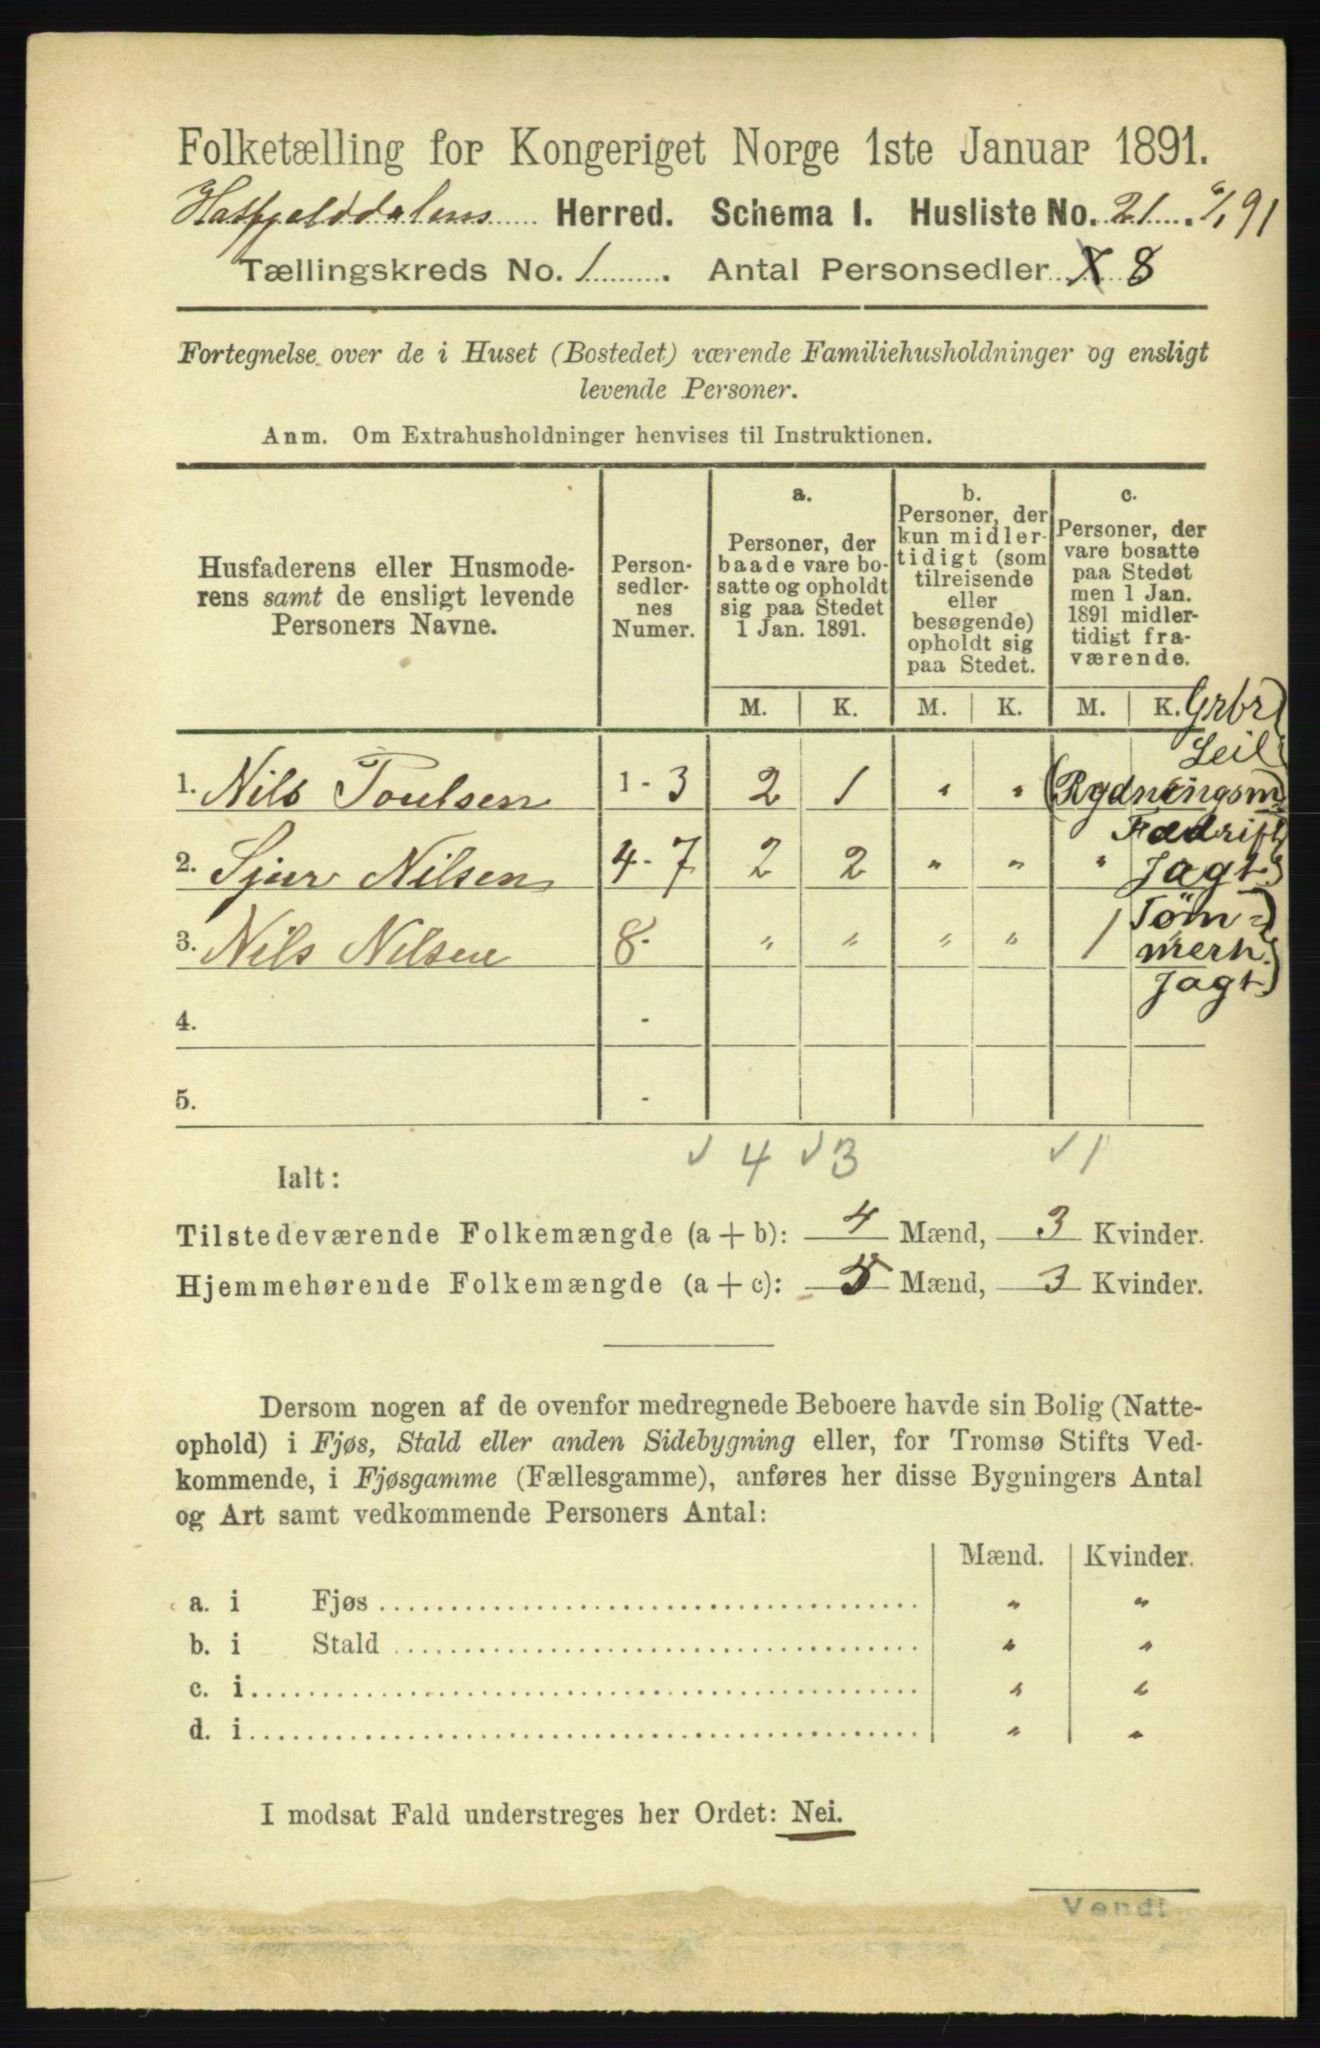 Folketælling for Kongeriget Norge 1ste Januar 1891.
Hatfjelddalens Herred. Schema I. Husliste No. 21.
Tællingskreds No. 1. Antal Personsedler 8
Fortegnelse over de i Huset (Bostedet) værende Familiehusholdninger og ensligt
levende Personer.
Anm. Om Extrahusholdninger henvises til Instruktionen.
Husfaderens eller Husmode-
rens samt de ensligt levende
Personers Navne.
Person-
sedler-
nes
Numer.
a.
Personer, der
baade vare bo-
satte og opholdt
sig paa Stedet
1 Jan. 1891.
b.
Personer, der
kun midler-
tidigt (som
tilreisende
eller
besøgende)
opholdt sig
paa Stedet.
c.
Personer, der
vare bosatte
paa Stedet
men 1 Jan.
1891 midler-
tidigt fra-
værende.
M. K. M. K. M. K. Grbr)
Leil
1. Nils Poulsen 1 - 3 2 1 " " (Rydningsm
Fædrift
2. Sjur Nilsen 4 - 7 2 2 " " " Jagt)
Tøm=)
3. Nils Nilsen 8 - " " " " 1 merh.)
Jagt)
4. -
5. -
√ 4 √ 3 √ 1
Ialt:
Tilstedeværende Folkemængde (a + b): 4 Mænd, 3 Kvinder.
Hjemmehørende Folkemængde (a + c): 5 Mænd, 3 Kvinder.
Dersom nogen af de ovenfor medregnede Beboere havde sin Bolig (Natte-
ophold) i Fjøs, Stald eller anden Sidebygning eller, for Tromsø Stifts Ved-
kommende, i Fjøsgamme (Fællesgamme), anføres her disse Bygningers Antal
og Art samt vedkommende Personers Antal:
Mænd. Kvinder.
a. i Fjøs " "
b. i Stald " "
c. i " "
d. i " "
I modsat Fald understreges her Ordet: Nei.
Vend!